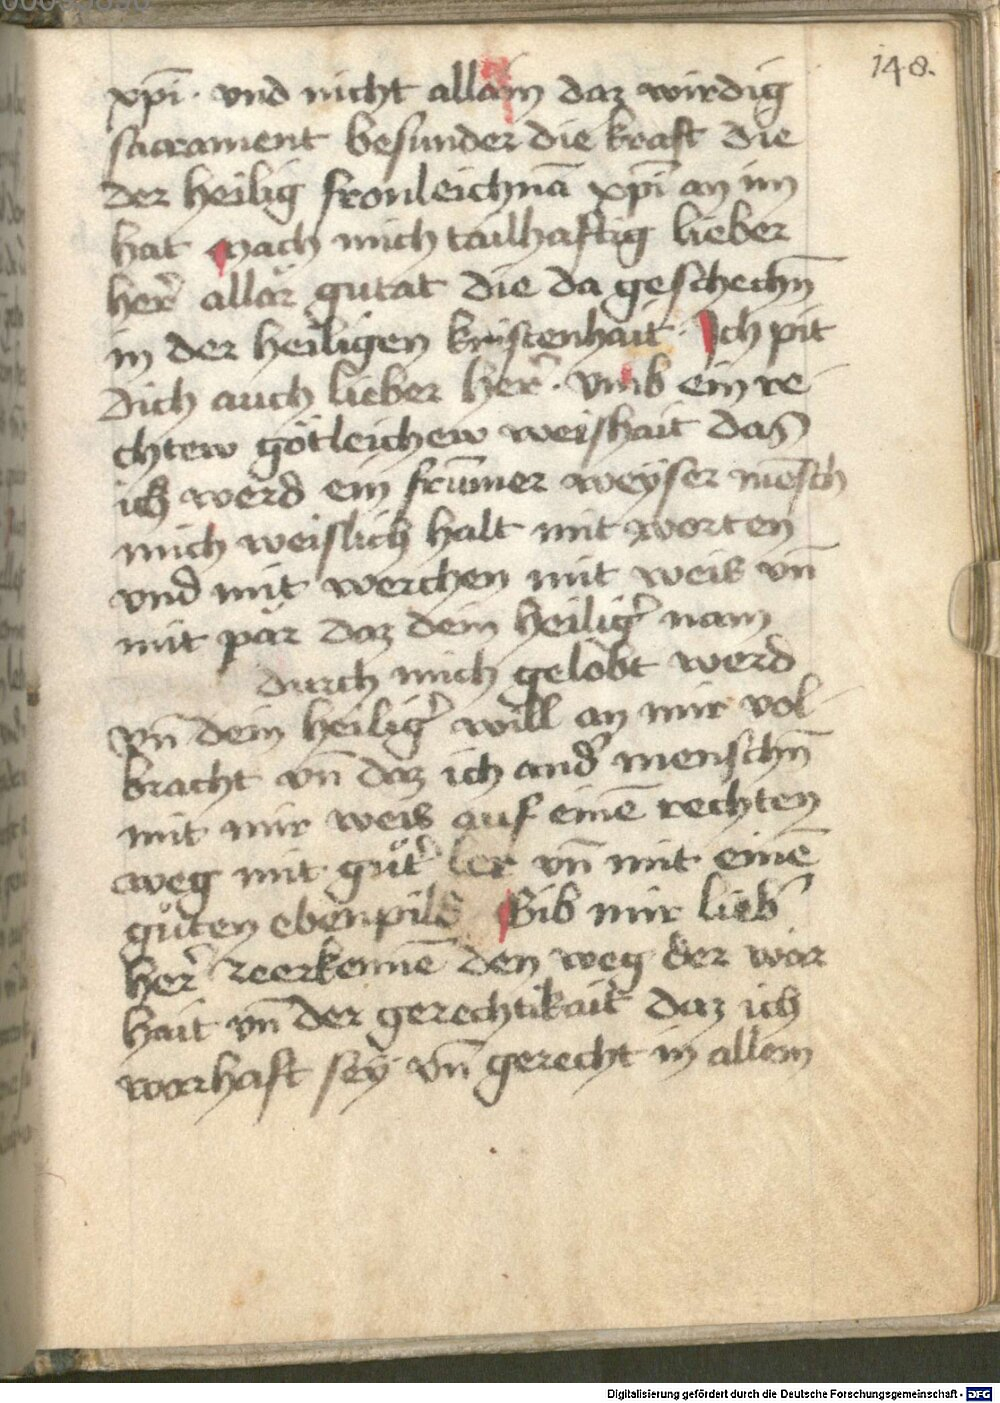 148.
xp̄i · vnd nicht allain daz wirdig
sacrament besunder die kraft die
der heilig fronleichnā xp̄i an im
hat mach mich tailhaftig lieber
her̄ allar gutat die da geschechn̄
in der heiligen kristenhait · Ich pit
dich auch lieber her̄ · vmb ein re
chtew götleichew weishait das
ich werd ein frūmer weyser mēsch
mich weislich halt mit worten
vnd mit werchen mit weis vn̄
mit pär daz dein heilig̕ nam
durch mich gelobt werd
vn̄ dein heilig̕ will an mir vol
bracht vn̄ daz ich and̕ menschn̄
mit mir weis auf einē rechten
weg mit gůt̕ ler vn̄ mit einē
gůten ebenpild Gib mir lieb̕
her̄ zeerkennē den weg der war
hait vn̄ der gerechtikait daz ich
warhaft sey vn̄ gerecht in allem
Digitalisierung gefördert durch die Deutsche Forschungsgemeinschaft - DFG